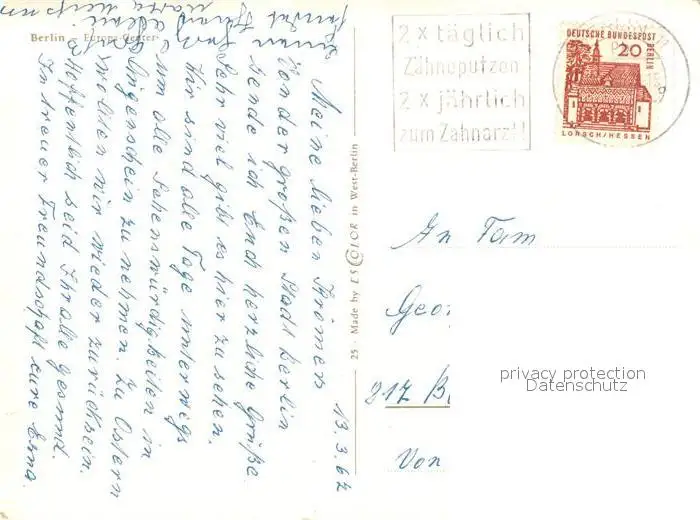 Berlin - Europa-Center
13.3.67
Meine lieben
Von der großen Stadt Berlin
sende ich Euch herzliche Grüße.
Sehr viel gibt es hier zu sehen.
Wir sind alle Tage unterwegs
um alle Sehenswürdigkeiten in
Augenschein zu nehmen. Zu Ostern
wollen wir wieder zurück sein.
Hoffentlich seid Ihr alle gesund.
In treuer Freundschaft eure Erna.
25 - Made by ESCOLOR in West-Berlin
2 x täglich
Zähneputzen
2 x jährlich
zum Zahnarzt!
DEUTSCHE BUNDESPOST
BERLIN
20
LORSCH/HESSEN
An Fam
Geor
217 B
Von
privacy protection
Datenschutz